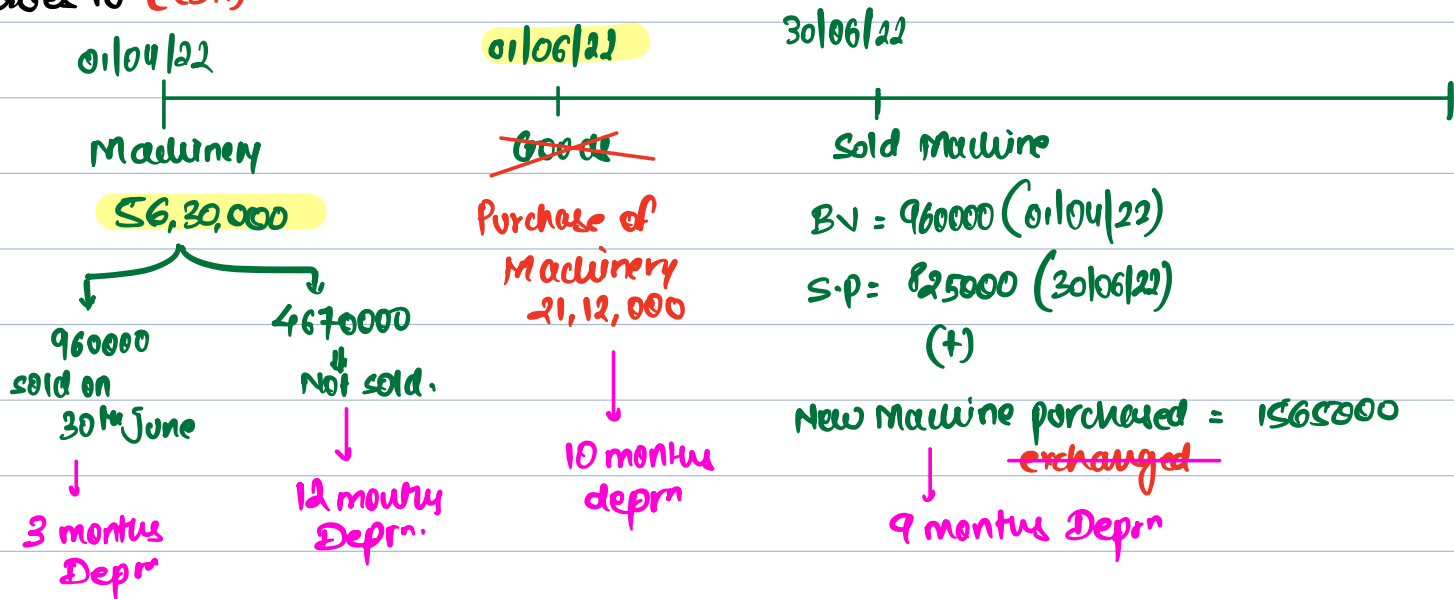 01/04/22
01/06/22
30/06/22
Machinery
56,30,000
960000
sold on
30th June
3 months
Deprn
4670000
Not sold.
12 months
Deprn.
Purchase of
Machinery
21,12,000
10 months
deprn
Sold Machine
BV = 960000 (01/04/22)
S.P = 825000 (30/06/22)
(+)
New Machine purchased = 1565000
exchanged
9 months Deprn